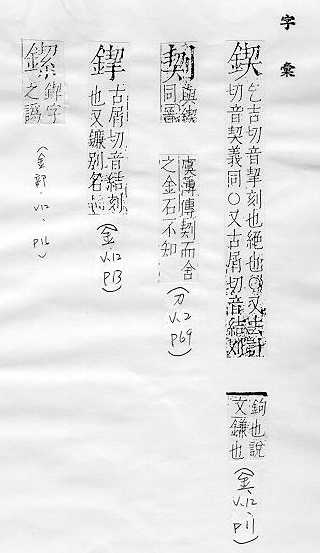 字彙
鍥
乞吉切音挈刻也絕也○又去計
切音契義同○又古屑切音結刈
鉤也說
文鎌也
(金 V.12. P11)
與鍥
同
虞薄傳契而舍
之金石不知
(刀 V.2 P69)
古屑切音結刻
也又鐮別名
(金 V.12 P13)
鍥字
之譌
(金部. V.12. P12)